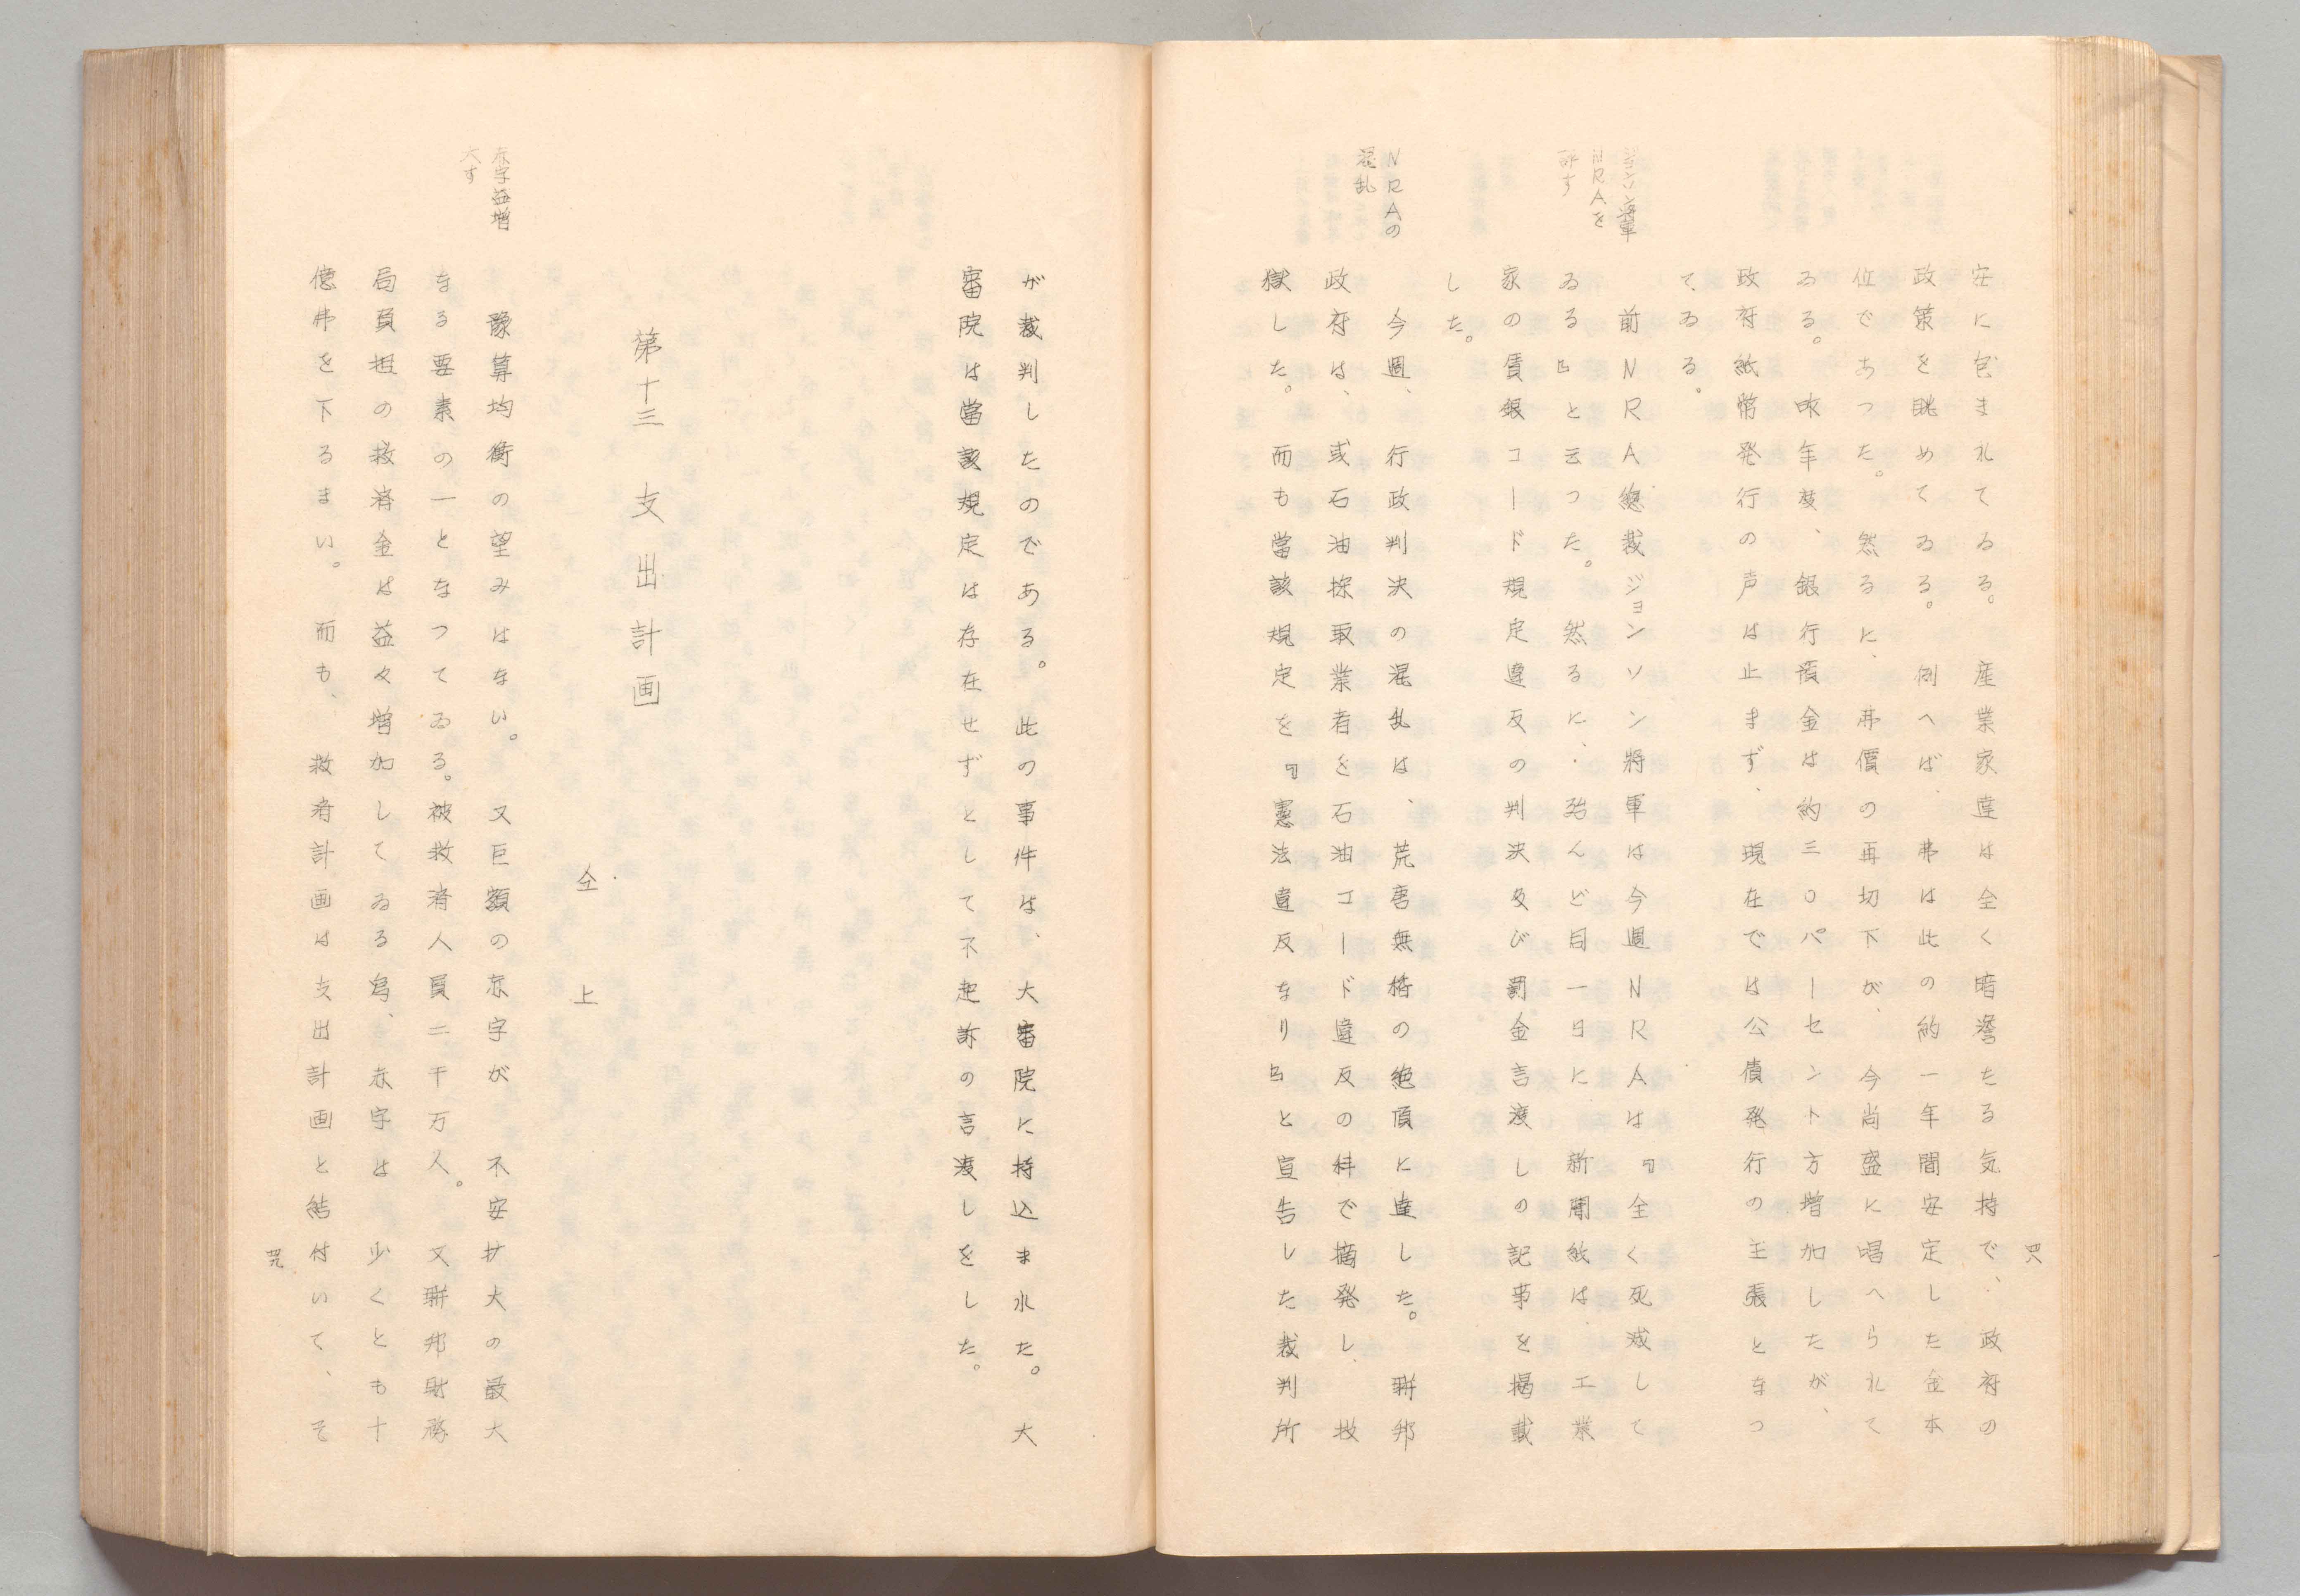 四八
安に包まれてゐる。　産業家達は全く暗澹たる気持で、政府の
政策を眺めてゐる。　例へば、弗は此の約一年間安定した金本
位であつた。　然るに、弗價の再切下が、今尚盛に唱へられて
ゐる。　昨年度、銀行預金は約三〇パーセント方増加したが、
政府紙幣発行の声は止まず、現在では公債発行の主張となつ
てゐる。
NRAを
訴す
前NRA總裁ジョンソン將軍は今週NRAは『全く死滅して
ゐる』と云つた。　然るに、殆んど同一日に、新聞紙は、工業
家の賃銀コード規定違反の判決及び罰金言渡しの記事を掲載
した。
NRAの
混乱
今週、行政判決の混乱は、荒唐無稽の絶頂に達した。　聯邦
政府は、或石油採取業者を石油コード違反の科で摘発し、投
獄した。　而も當該規定を『憲法違反なり』と宣告した裁判所
が裁判したのである。　此の事件は、大審院に持込まれた。　大
審院は當該規定は存在せずとして不起訴の言渡しをした。
第十三　支出計画
仝上
赤字益増
大す
豫算均衡の望みはない。　又巨額の赤字が、不安扩大の最大
なる要素の一となつてゐる。被救済人員二千万人。　又聯邦財務
局負担の救済金は益々増加してゐる為、赤字は、少くとも十
億弗を下るまい。　而も、救済計画は支出計画と結付いて、そ
四九